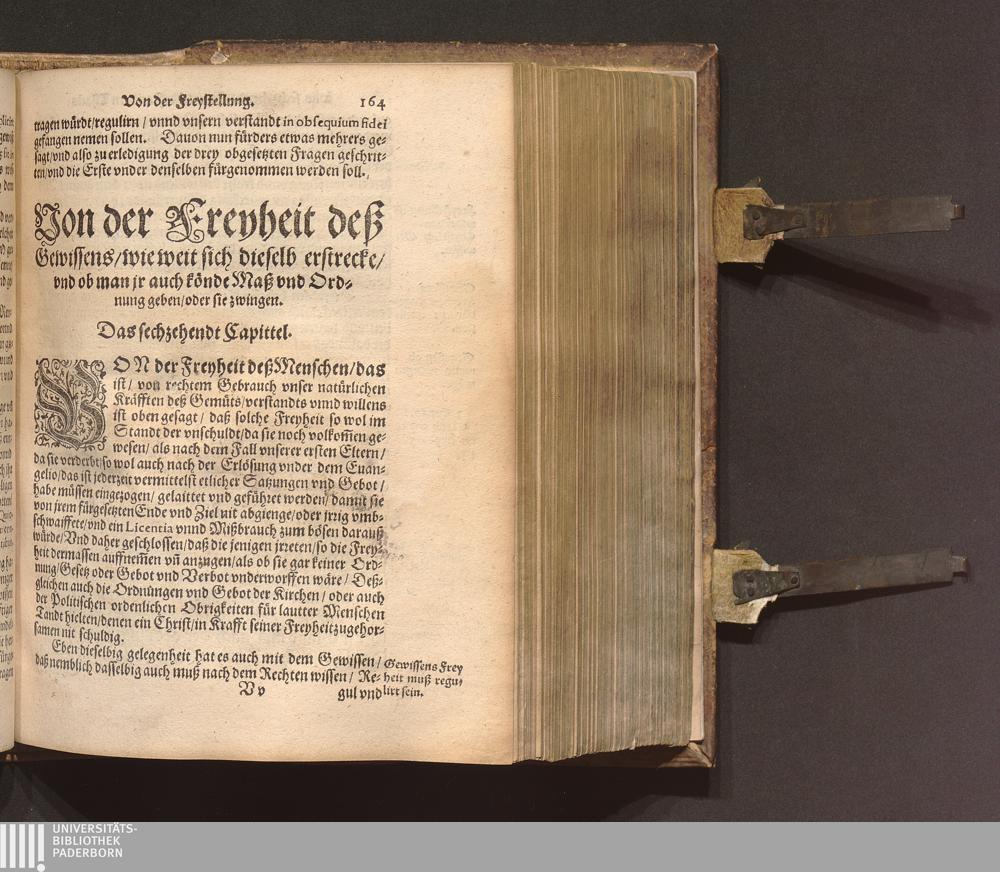 Von der Freystellung. 164
tragen würdt/regulirn / vnnd vnsern verstandt in obsequium fidei
gefangen nemen sollen. Dauon nun fürders etwas mehrers ge-
sagt/vnd also zu erledigung der drey obgesetzten Fragen geschrit-
ten/vnd die Erste vnder denselben fürgenommen werden soll.
Von der Freyheit deß
Gewissens/wie weit sich dieselb erstrecke/
vnd ob man jr auch könde Maß vnd Ord-
nung geben/oder sie zwingen.
Das sechzehendt Capittel.
VON der Freyheit deß Menschen/das
ist/ von rechtem Gebrauch vnser natürlichen
Kräfften deß Gemüts/verstandts vnnd willens
ist oben gesagt/ daß solche Freyheit so wol im
Standt der vnschuldt/da sie noch volkom̃en ge-
wesen/ als nach dem Fall vnserer ersten Eltern/
da sie verderbt/so wol auch nach der Erlösung vnder dem Euan-
gelio/das ist jederzeit vermittelst etlicher Satzungen vnd Gebot/
habe müssen eingezogen/ gelaittet vnd geführet werden/damit sie
von jrem fürgesetzten Ende vnd Ziel nit abgienge/oder jrrig vmb-
schwaiffete/vnd ein Licentia vnnd Mißbrauch zum bösen darauß
würde/Vnd daher geschlossen/daß die jenigen jrreten/so die Frey-
heit dermassen auffnem̃en vn̄ anzugen/als ob sie gar keiner Ord-
nung/Gesetz oder Gebot vnd Verbot vnderworffen wäre/ Deß-
gleichen auch die Ordnungen vnd Gebot der Kirchen/ oder auch
der Politischen ordenlichen Obrigkeiten für lautter Menschen
Tandt hielten/denen ein Christ/in Krafft seiner Freyheit zugehor-
samen nit schuldig.
Eben dieselbig gelegenheit hat es auch mit dem Gewissen/
daß nemblich dasselbig auch muß nach dem Rechten wissen/ Re-
Vv gul vnd
Gewissens Frey
heit muß regu-
lirt sein.
UNIVERSITÄTS-
BIBLIOTHEK
PADERBORN